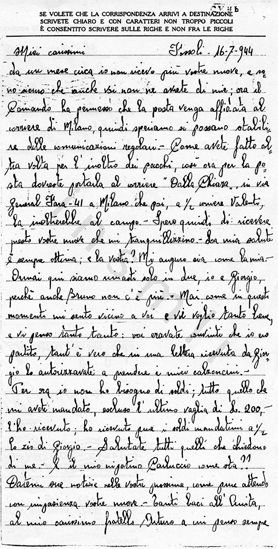 SE VOLETE CHE LA CORRISPONDENZA ARRIVI A DESTINAZIONE
SCRIVETE CHIARO E CON CARATTERI NON TROPPO PICCOLI
È CONSENTITO SCRIVERE SULLE RIGHE E NON FRA LE RIGHE
Miei carissimi Fossoli - 16-7-944
da un mese circa io non ricevo più vostre nuove, e sup
pongo che anche voi non ne avrete di mie; ora il
Comando ha permesso che la posta venga affidata al
corriere di Milano, quindi speriamo si possano stabili
re delle comunicazioni regolari - Come avete fatto al
tra volta per l'inoltro dei pacchi, così ora per la po
sta dovreste portarla al corriere Dalla Chiesa, in via
General Fara - 41 a Milano che poi, a/½ corriere Valenti,
la inoltrerebbe al campo - Spero quindi di ricevere
presto vostre nuove che mi tranquillizzino - La mia salute
è sempre ottima; e la vostra? Mi auguro sia come la mia -
Ormai qui siamo rimasti solo in due, io e Giorgio,
perchè anche Bruno non c'è più - Mai come in questi
momenti mi sento vicino a voi e vi voglio tanto bene,
e vi penso tanto tanto: voi eravate convinti che io ero
partito, tant'è vero che in una lettera ricevuta da Gior
gio lo autorizzavate a prendere i miei calzoncini -
Per ora io non ho bisogno di soldi; tutto quello che
mi avete mandato, escluso l'ultimo vaglia di L. 200,
l'ho ricevuto; ho ricevuto pure i soldi mandatimi a/½
lo zio di Giorgio - Salutate tutti quelli che chiedono
di me - E il mio nipotino Carluccio come sta??
Datemi sue notizie nella vostra prossima, come pure attendo
con impazienza vostre nuove - Tanti baci all'Anita,
al mio carissimo fratello Arturo a cui penso sempre